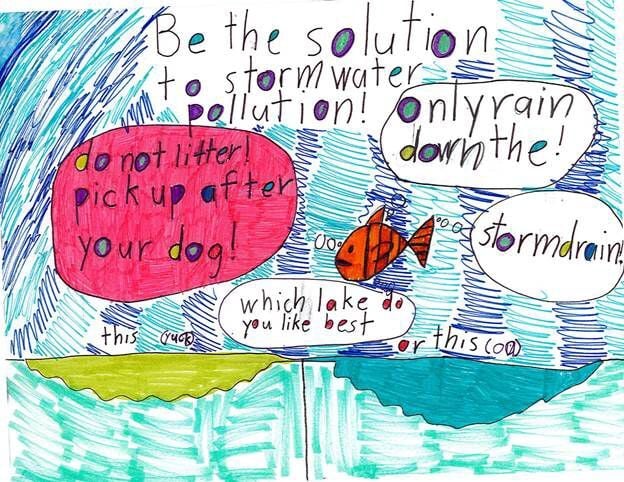 Be the solution
to stormwater
pollution!
only rain
down the!
do not litter!
pick up after
your dog!
stormdrain!
which lake do
you like best
this (yuck)
or this (cool)